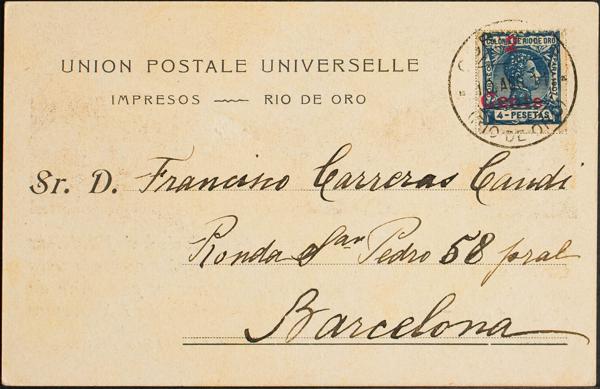 UNION POSTALE UNIVERSELLE
IMPRESOS — RIO DE ORO
COLONIA DE RIO DE ORO
2
Cents
4 - PESETAS
RIO DE ORO
Sr. D. Francisco Carreras Candi
Ronda San Pedro 58 pral
Barcelona